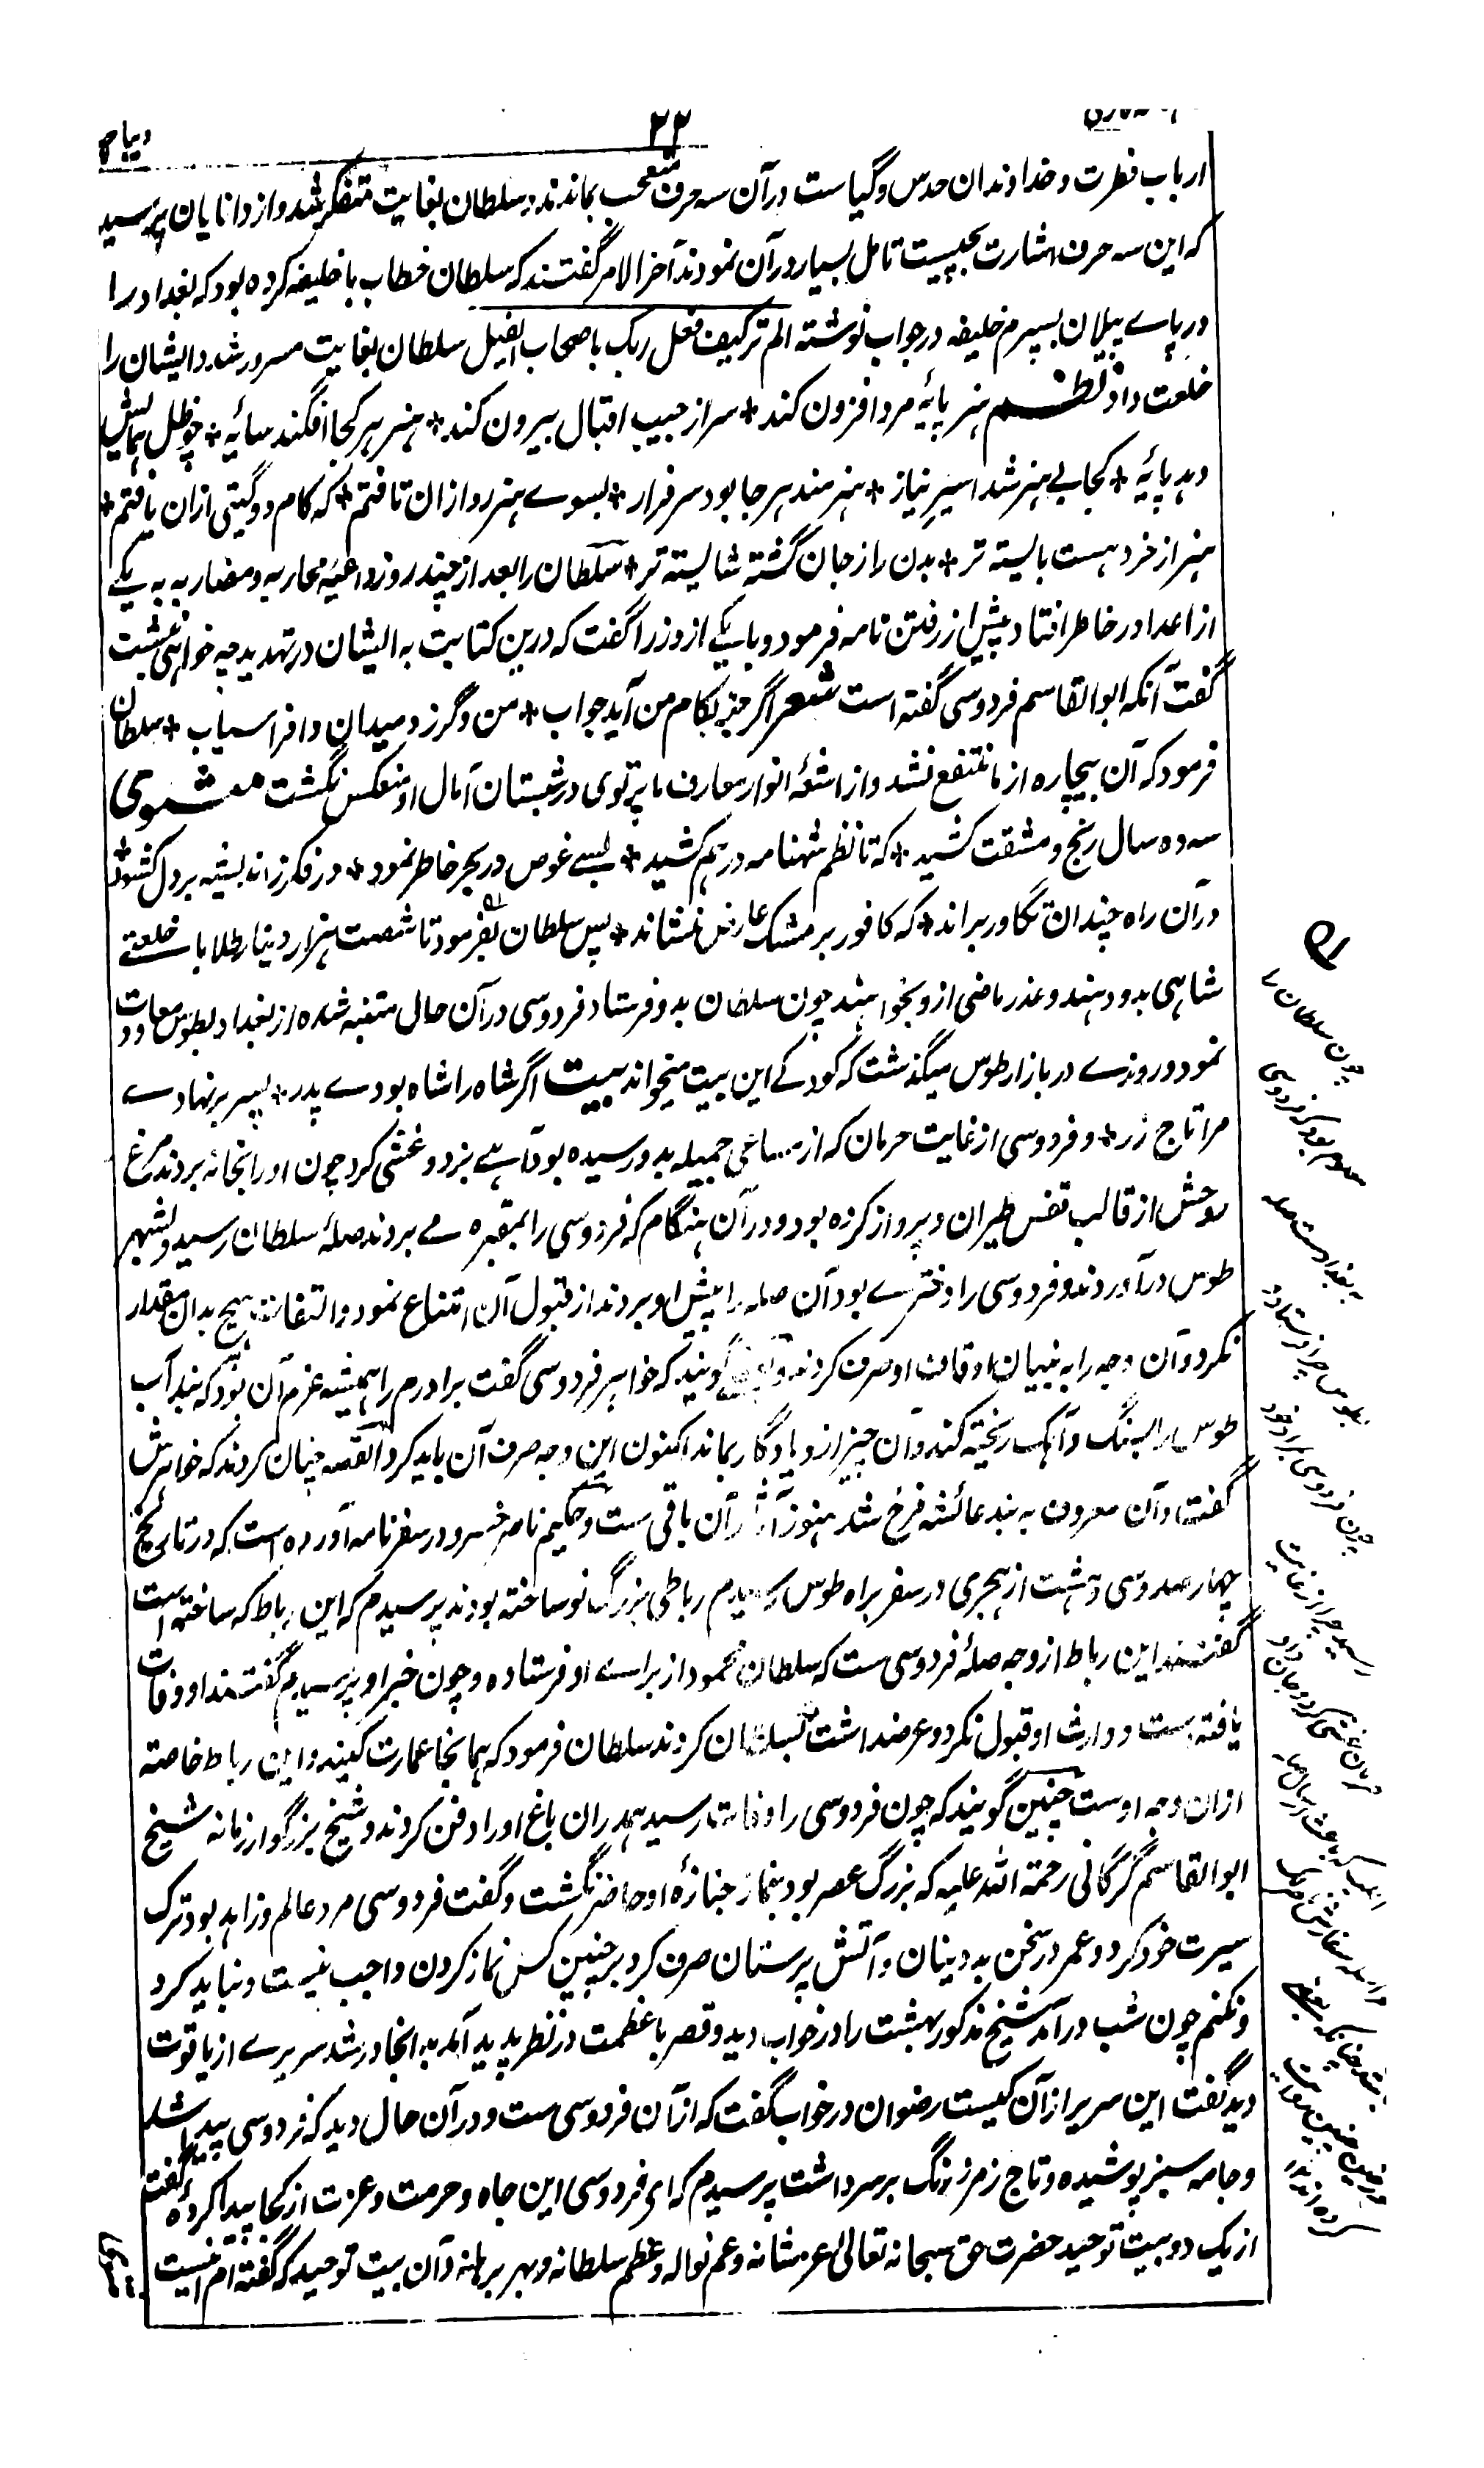 دیباچه
۲۲
ارباب فطرت و خداوندان حدس و گیاست در آن سه حرف متعجب بماندند و سلطان بغایت متفکر شد و از دانایان پرسید
که این سه حرف اشارت بچیست تامل بسیار در آن نمودند آخر الامر گفتند که سلطان خطاب با خلیفه کرده بود که بغداد را
در پاے پیلان بسپرم خلیفه در جواب نوشته الم تر کیف فعل ربک باصحاب الفیل سلطان بغایت مسرور شد و ایشان را
خلعت داد نظم هنر پایۀ مرد افزون کند * سر از جیب اقبال بیرون کند * هنر هر کجا افگند سایۀ * چو ظل همایش
دهد پایۀ * کجا بی هنر شد اسیر نیاز * هنرمند هر جا بود سرفراز * بسوے هنر رو ازان تافتم * که کام دو گیتی ازان یافتم *
هنر از خرد هست بایسته تر * بدن را ز جان گشته شایسته تر * سلطان را بعد از چند روز داعیۀ محاربه و مضاربه به یکے
از اعدا در خاطر افتاد پیش از رفتن نامه فرمود و با یکے از وزرا گفت که درین کتابت به ایشان در تهدید چه خواهی نبشت
گفت آنکه ابو القاسم فردوسی گفته است شعر اگر جز بکام من آید جواب * من و گرز و میدان و افراسیاب * سلطان
فرمود که آن بیچاره از ما منتفع نشد و از اشعۀ انوار معارف ما پرتوی در شبستان آمال او منعکس نگشت مثنوی
سه ده سال رنج و مشقت کشید * که تا نظم شهنامه در هم کشید * بسے غوص در بحر خاطر نمود * در فکر ز اندیشه بر دل کشود *
در آن راه چندان تگاور براند * که کافور بر مشک عارض نشاند * پس سلطان بفرمود تا شصت هزار دینار طلا با خلعتے
شاهی بدو دهند و عذر ماضی ازو بخواهند چون سلطان بدو فرستاد فردوسی در آن حال متنبه شده از بغداد بطوس معاودت
نمود و روزے در بازار طوس میگذشت که کودکے این بیت میخواند بیت اگر شاه را شاه بودے پدر * بسر بر نهادے
مرا تاج زر * و فردوسی از غایت حرمان که از مساعی جمیله بدو رسیده بود آہے بزد و غشی کرد چون او را بخانه بردند مرغ
روحش از قالب قفس طیران و پرواز کرده بود و در آن هنگام که فردوسی را بمقبره مے بردند صلۀ سلطان رسید و بشهر
طوس درآوردند و فردوسی را دخترے بود آن صله را پیش او بردند از قبول آن امتناع نمود و التفات هیچ بدان مقدار
نکرد و آن وجه را به اوقات او صرف کردند و گویند که خواهر فردوسی گفت برادرم را همیشه عزم آن بود که بند آب
طوس را بسنگ و آهک ریخته کند و آن چیز ازو یادگار بماند اکنون این وجه صرف آن باید کرد القصه چنان کردند که خواهرش
گفت و آن معروف به بند عائشه فرخ شد هنوز آثار آن باقی ست و حکیم ناصر خسرو در سفرنامه آورده است که در تاریخ
چهار صد و سی و هشت از هجری در سفر براه طوس رسیدم رباطی بزرگ نو ساخته بودند پرسیدم که این رباط که ساخته است
گفتند این رباط از وجه صلۀ فردوسی ست که سلطان محمود از براے او فرستاده و چون خبر او پرسیدم گفتند او وفات
یافته است و وارث او قبول نکرد و عرضداشت بسلطان کردند سلطان فرمود که همانجا عمارت کنید و این رباط خاصته
ازان وجه اوست چنین گویند که چون فردوسی را وفات رسید هم دران باغ او را دفن کردند و شیخ بزرگوار زمانه شیخ
ابو القاسم گرگانی رحمة الله علیه که بزرگ عصر بود بنماز جنازۀ او حاضر نگشت و گفت فردوسی مرد عالم و زاهد بود ترک
سیرت خود کرد و عمر در سخن بددینان و آتش پرستان صرف کرد بر چنین کس نماز کردن واجب نیست و نباید کرد
و نکنم چون شب درآمد شیخ مذکور بهشت را در خواب دید و قصر با عظمت در نظر پدید آمد به انجا در شد سریرے از یاقوت
دید گفت این سریر از آن کیست رضوان در خواب گفت که از آن فردوسی ست و در آن حال دید که فردوسی پیدا شد
و جامه سبز پوشیده و تاج زمرد رنگ بر سر داشت پرسیدم که ای فردوسی این جاه و حرمت و عزت از کجا پیدا کردۀ گفت
از یک دو بیت توحید حضرت حق سبحانه تعالی عز شانه و عم نواله و عظم سلطانه و بهر برهانه و آن بیت توحید که گفته ام اینست
چون سلطان را
معلوم بود که فردوسی
به بغداد ست صله
بطوس چرا فرستاد و
چون فردوسی بمراد خود
رسید چرا از غایت
حرمان غشی کرد و جان داد